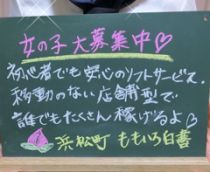 女の子 大募集中♡
初心者でも安心のソフトサービス。
移動のない店舗型で
誰でもたくさん稼げるよ♡
浜松町 ももいろ白書